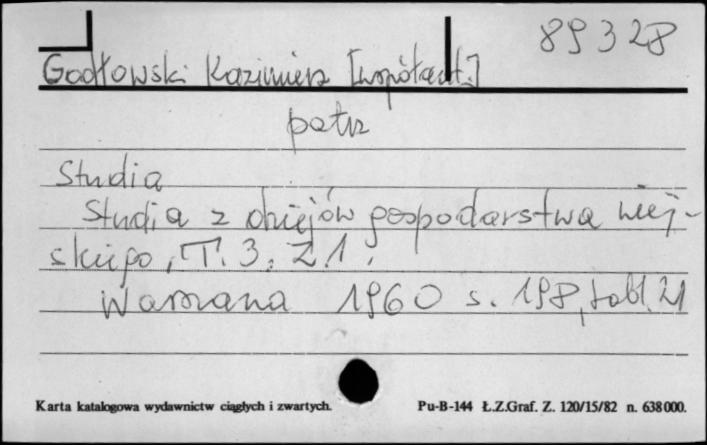 89328
Godłowski Kazimierz [współaut.]
patrz
Studia
Studia z dziejów gospodarstwa wiej-
skiego, T. 3, Z. 1.
Warszawa 1960 s. 198, tabl. 21
Karta katalogowa wydawnictw ciągłych i zwartych. Pu-B-144 Ł.Z.Graf. Z. 120/15/82 n. 638000.